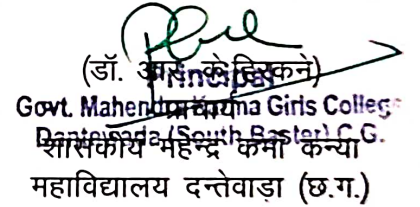 (डॉ. आर. के हिरकने)
Principal
Govt. Mahendra Karma Girls College
प्राचार्य
Dantewada (South Bastar) C.G.
शासकीय महेन्द्र कर्मा कन्या
महाविद्यालय दन्तेवाड़ा (छ.ग.)